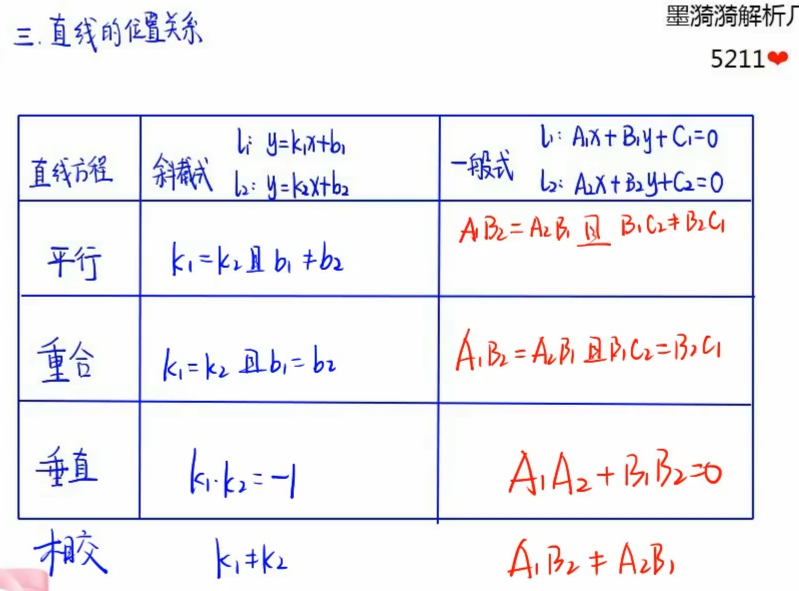 墨漪漪解析几
5211❤
三.直线的位置关系
直线方程
斜截式
l₁: y=k₁x+b₁
l₂: y=k₂x+b₂
一般式
l₁: A₁x+B₁y+C₁=0
l₂: A₂x+B₂y+C₂=0
平行
k₁=k₂且b₁≠b₂
A₁B₂=A₂B₁且 B₁C₂≠B₂C₁
重合
k₁=k₂且b₁=b₂
A₁B₂=A₂B₁且B₁C₂=B₂C₁
垂直
k₁·k₂=-1
A₁A₂+B₁B₂=0
相交
k₁≠k₂
A₁B₂≠A₂B₁